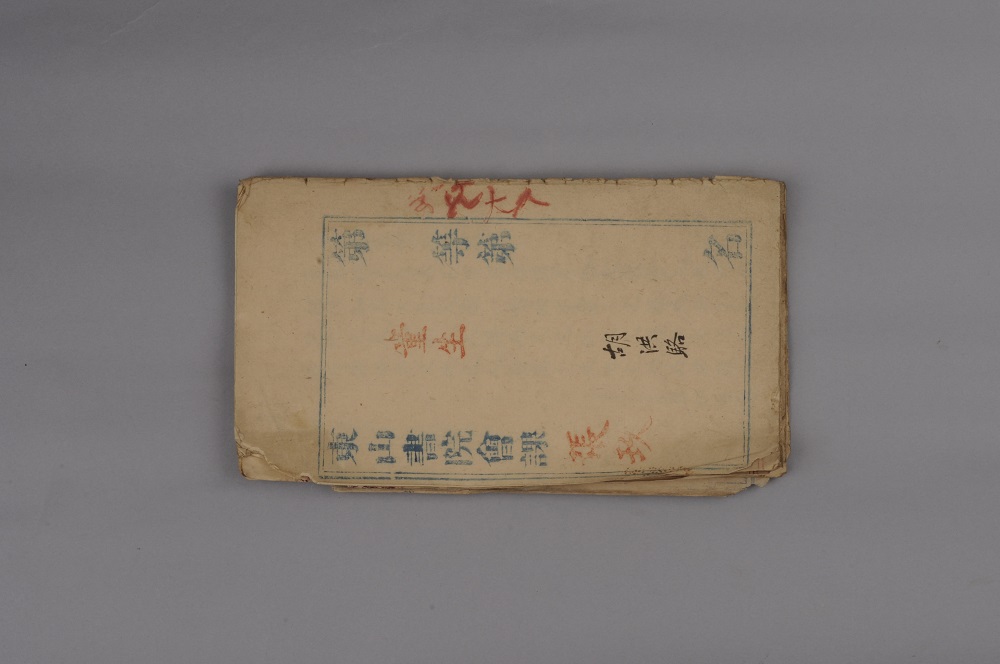 大人
第 等第 名
童生 胡洪駱
東山書院會課